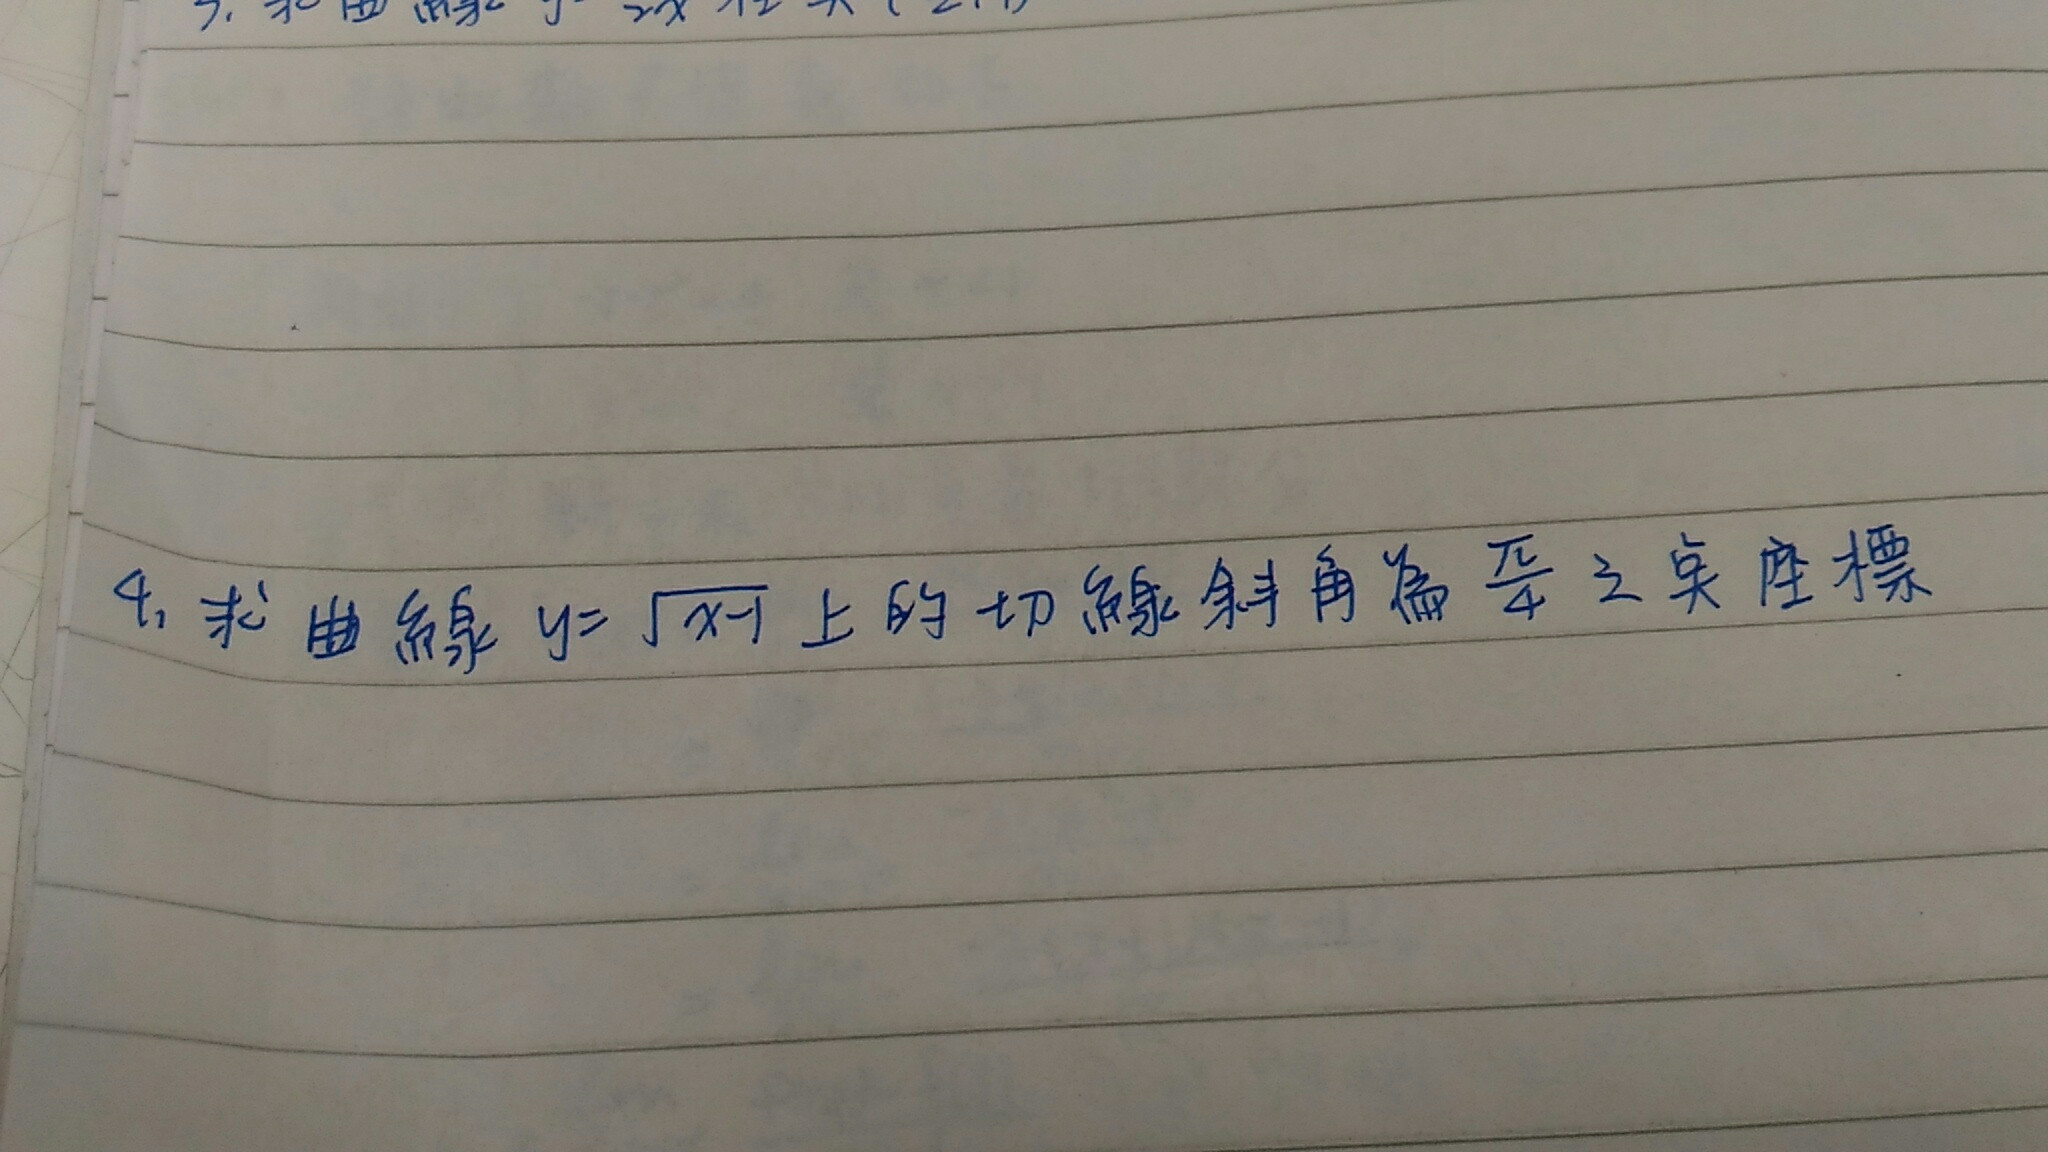 3. 求曲線 y=
4. 求曲線 y=√x-1 上的切線斜角為 π/4 之点座標